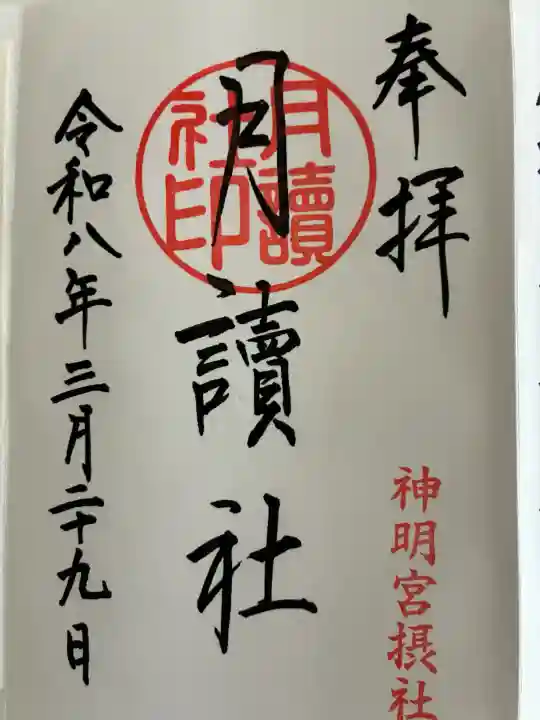 奉拝
神明宮摂社
月讀社
月讀社印
令和八年三月二十九日